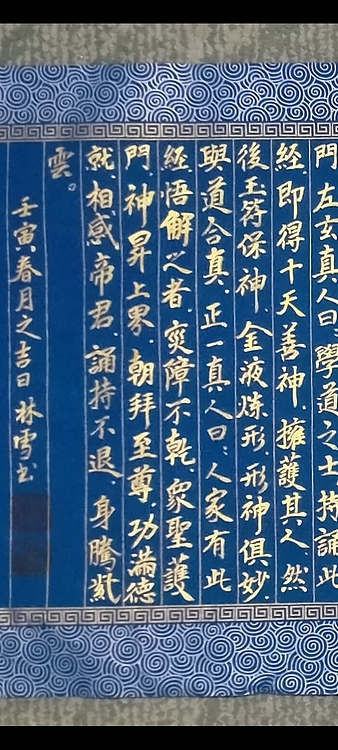 門。左玄真人曰、學道之士、持誦此
經、即得十天善神、擁護其人。然
後玉符保神、金液煉形、形神俱妙、
與道合真。正一真人曰、人家有此
經、悟解之者、災障不乾、衆聖護
門、神昇上界、朝拜至尊、功滿德
就、相感帝君、誦持不退、身騰紫
雲。
壬寅春月之吉日 林雪书